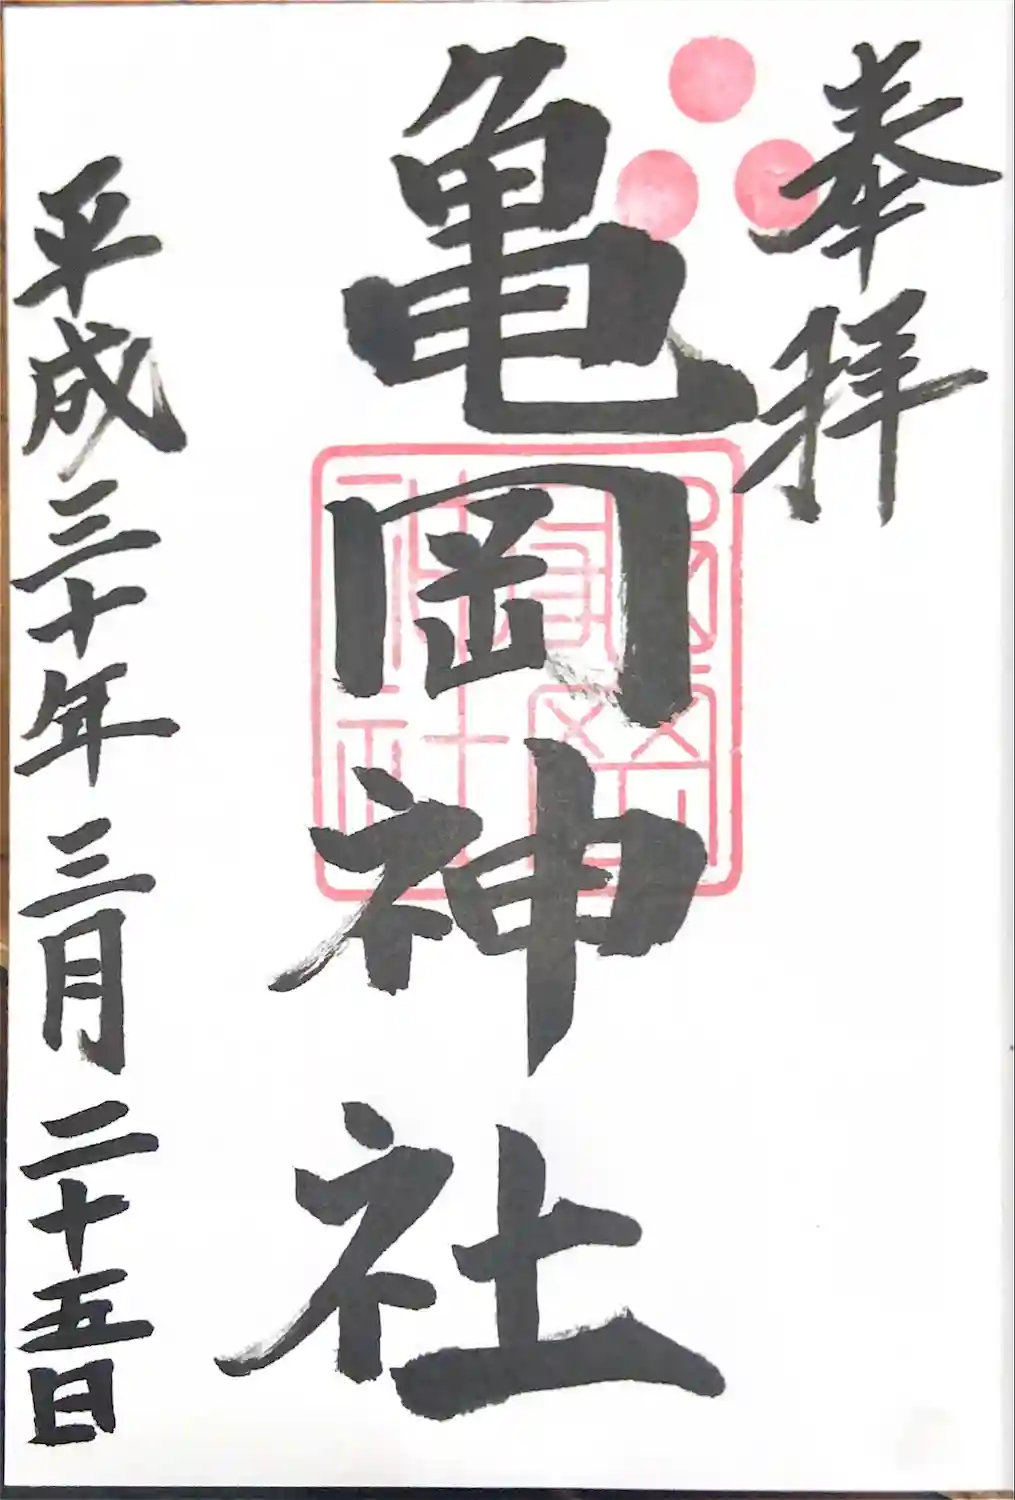 奉拝
亀岡神社
平成三十年三月二十五日